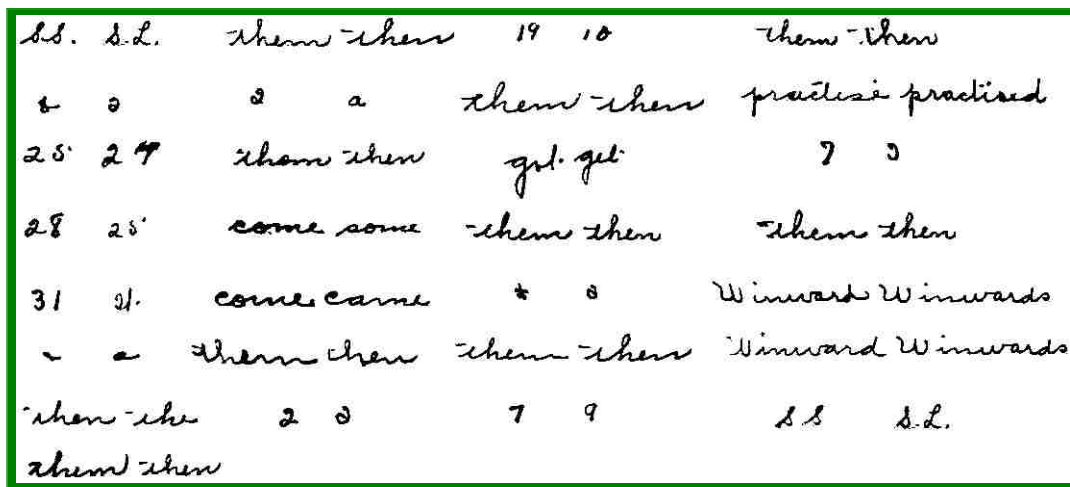 S.S. S.L. them then 19 10 them then
2 a them then practise practised
25 24 them then got get 7 9
28 25 come some them then them then
31 21 come came * a Winward Winwards
a them then them then Winward Winwards
then the 2 2 7 9 SS S.L.
them then